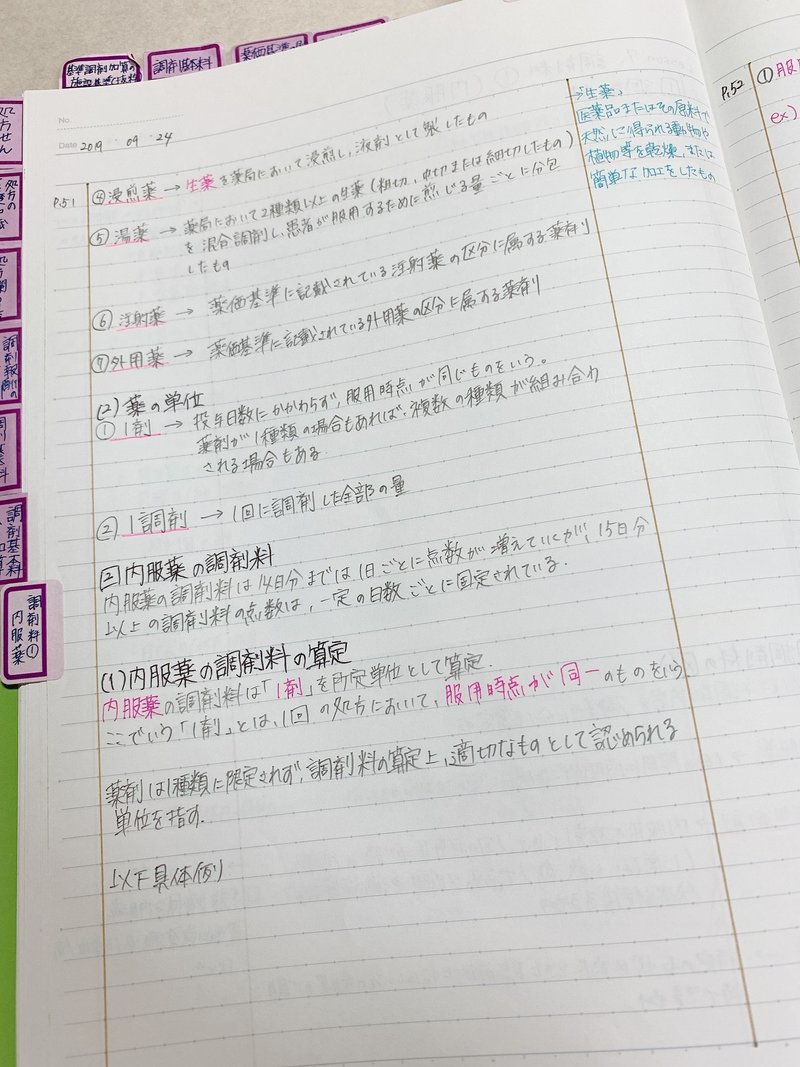 基準調剤加算の
施設基準は抜粋
調剤基本料
薬価基準の
処方せん
処方
調剤報酬
調剤基本料
調剤料①
内服薬
No.
Date 2019 ・ 09 ・ 24
P.51
④浸煎薬 → 生薬を薬局において浸煎し、液剤として製したもの
⑤湯薬 → 薬局において2種類以上の生薬(粗切、中切または細切したもの)
を混合調剤し、患者が服用するために煎じる量ごとに分包
したもの
⑥注射薬 → 薬価基準に記載されている注射薬の区分に属する薬剤
⑦外用薬 → 薬価基準に記載されている外用薬の区分に属する薬剤
(2)薬の単位
①1剤 → 投与日数にかかわらず、服用時点が同じものをいう。
薬剤が1種類の場合もあれば、複数の種類が組み合わ
される場合もある
②1調剤 → 1回に調剤した全部の量
②内服薬の調剤料
内服薬の調剤料は14日分までは1日ごとに点数が増えていくが、15日分
以上の調剤料の点数は、一定の日数ごとに固定されている.
(1)内服薬の調剤料の算定
内服薬の調剤料は「1剤」を所定単位として算定.
ここでいう「1剤」とは、1回の処方において、服用時点が同一のものをいう
薬剤は1種類に限定されず、調剤料の算定上、適切なものとして認められる
単位を指す.
以下具体例)
→「生薬」
医薬品またはその原料で
天然に得られる動物や
植物等を乾燥、または
簡単な加工をしたもの
P.52
①服
ex)